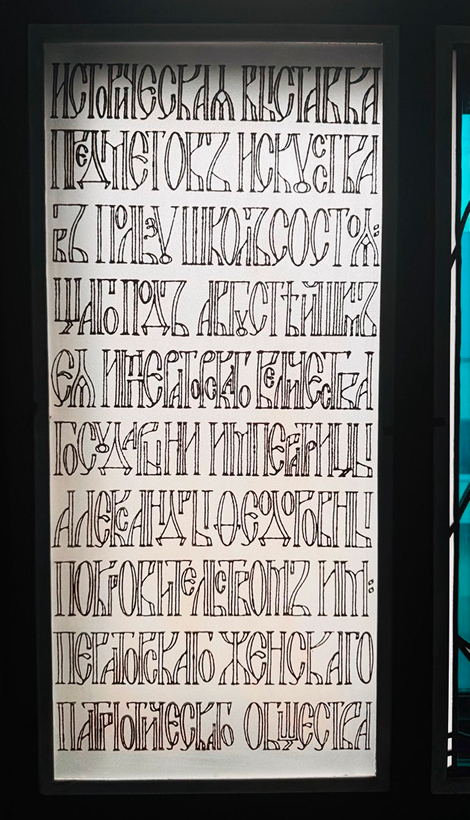 ИСТОРИЧЕСКАЯ ВЫСТАВКА
ПРЕДМЕТОВЪ ИСКУССТВА
ВЪ ПОЛЬЗУ ШКОЛЪ СОСТОЯ:
ЩАГО ПОДЪ АВГУСТѢЙШИМЪ
ЕЯ ИМПЕРАТОРСКАГО ВЕЛИЧЕСТВА
ГОСУДАРЫНИ ИМПЕРАТРИЦЫ
АЛЕКСАНДРЫ ѲЕОДОРОВНЫ
ПОКРОВИТЕЛЬСТВОМЪ ИМ:
ПЕРАТОРСКАГО ЖЕНСКАГО
ПАТРІОТИЧЕСКАГО ОБЩЕСТВА